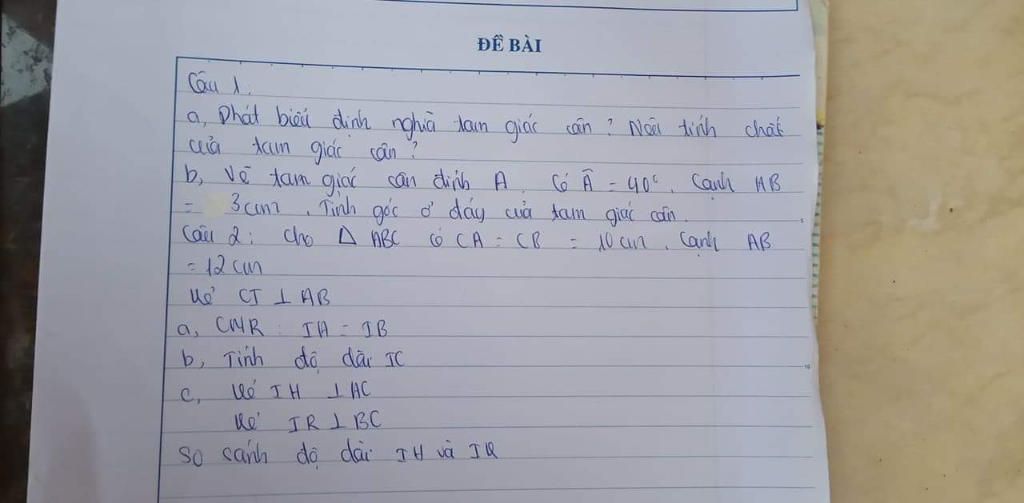 ĐỀ BÀI
Câu 1.
a, Phát biểu định nghĩa tam giác cân? Nêu tính chất
của tam giác cân?
b, Vẽ tam giác cân đỉnh A. Có Â = 40°. Cạnh AB
= 3cm. Tính góc ở đáy của tam giác cân.
Câu 2: Cho Δ ABC có CA = CB = 10cm. Cạnh AB
= 12cm
Kẻ CI ⊥ AB
a, CMR: IA = IB
b, Tính độ dài IC
c, Kẻ IH ⊥ AC
Kẻ IR ⊥ BC
So sánh độ dài IH và IR